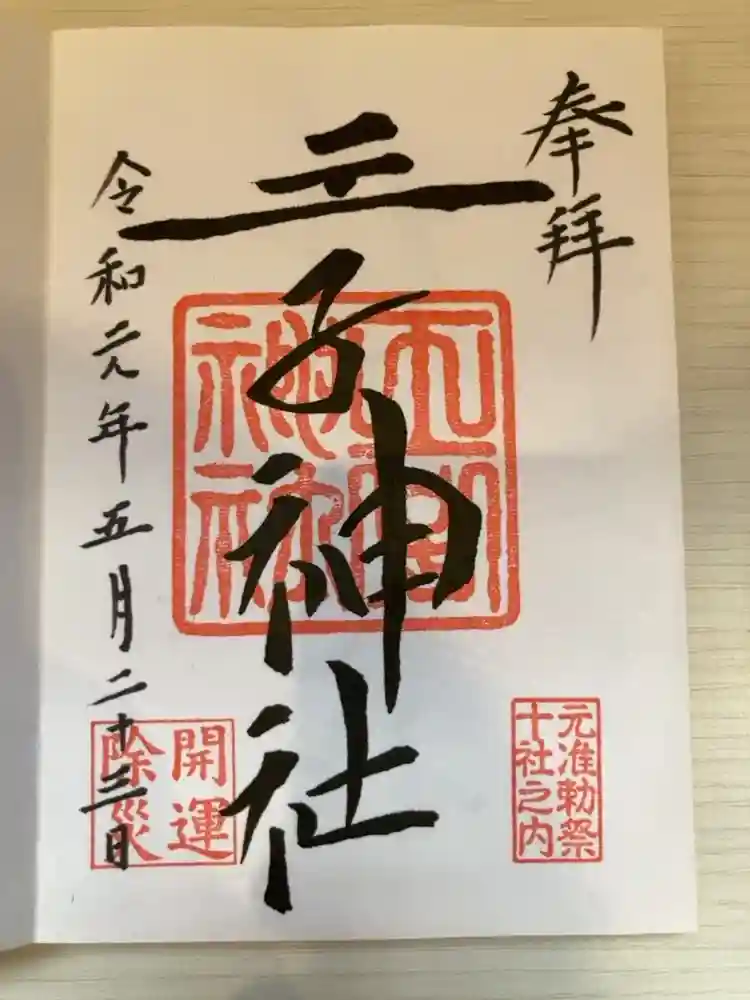 奉拝
元准勅祭
十社之内
王子神社
開運
除災
令和元年五月二十三日